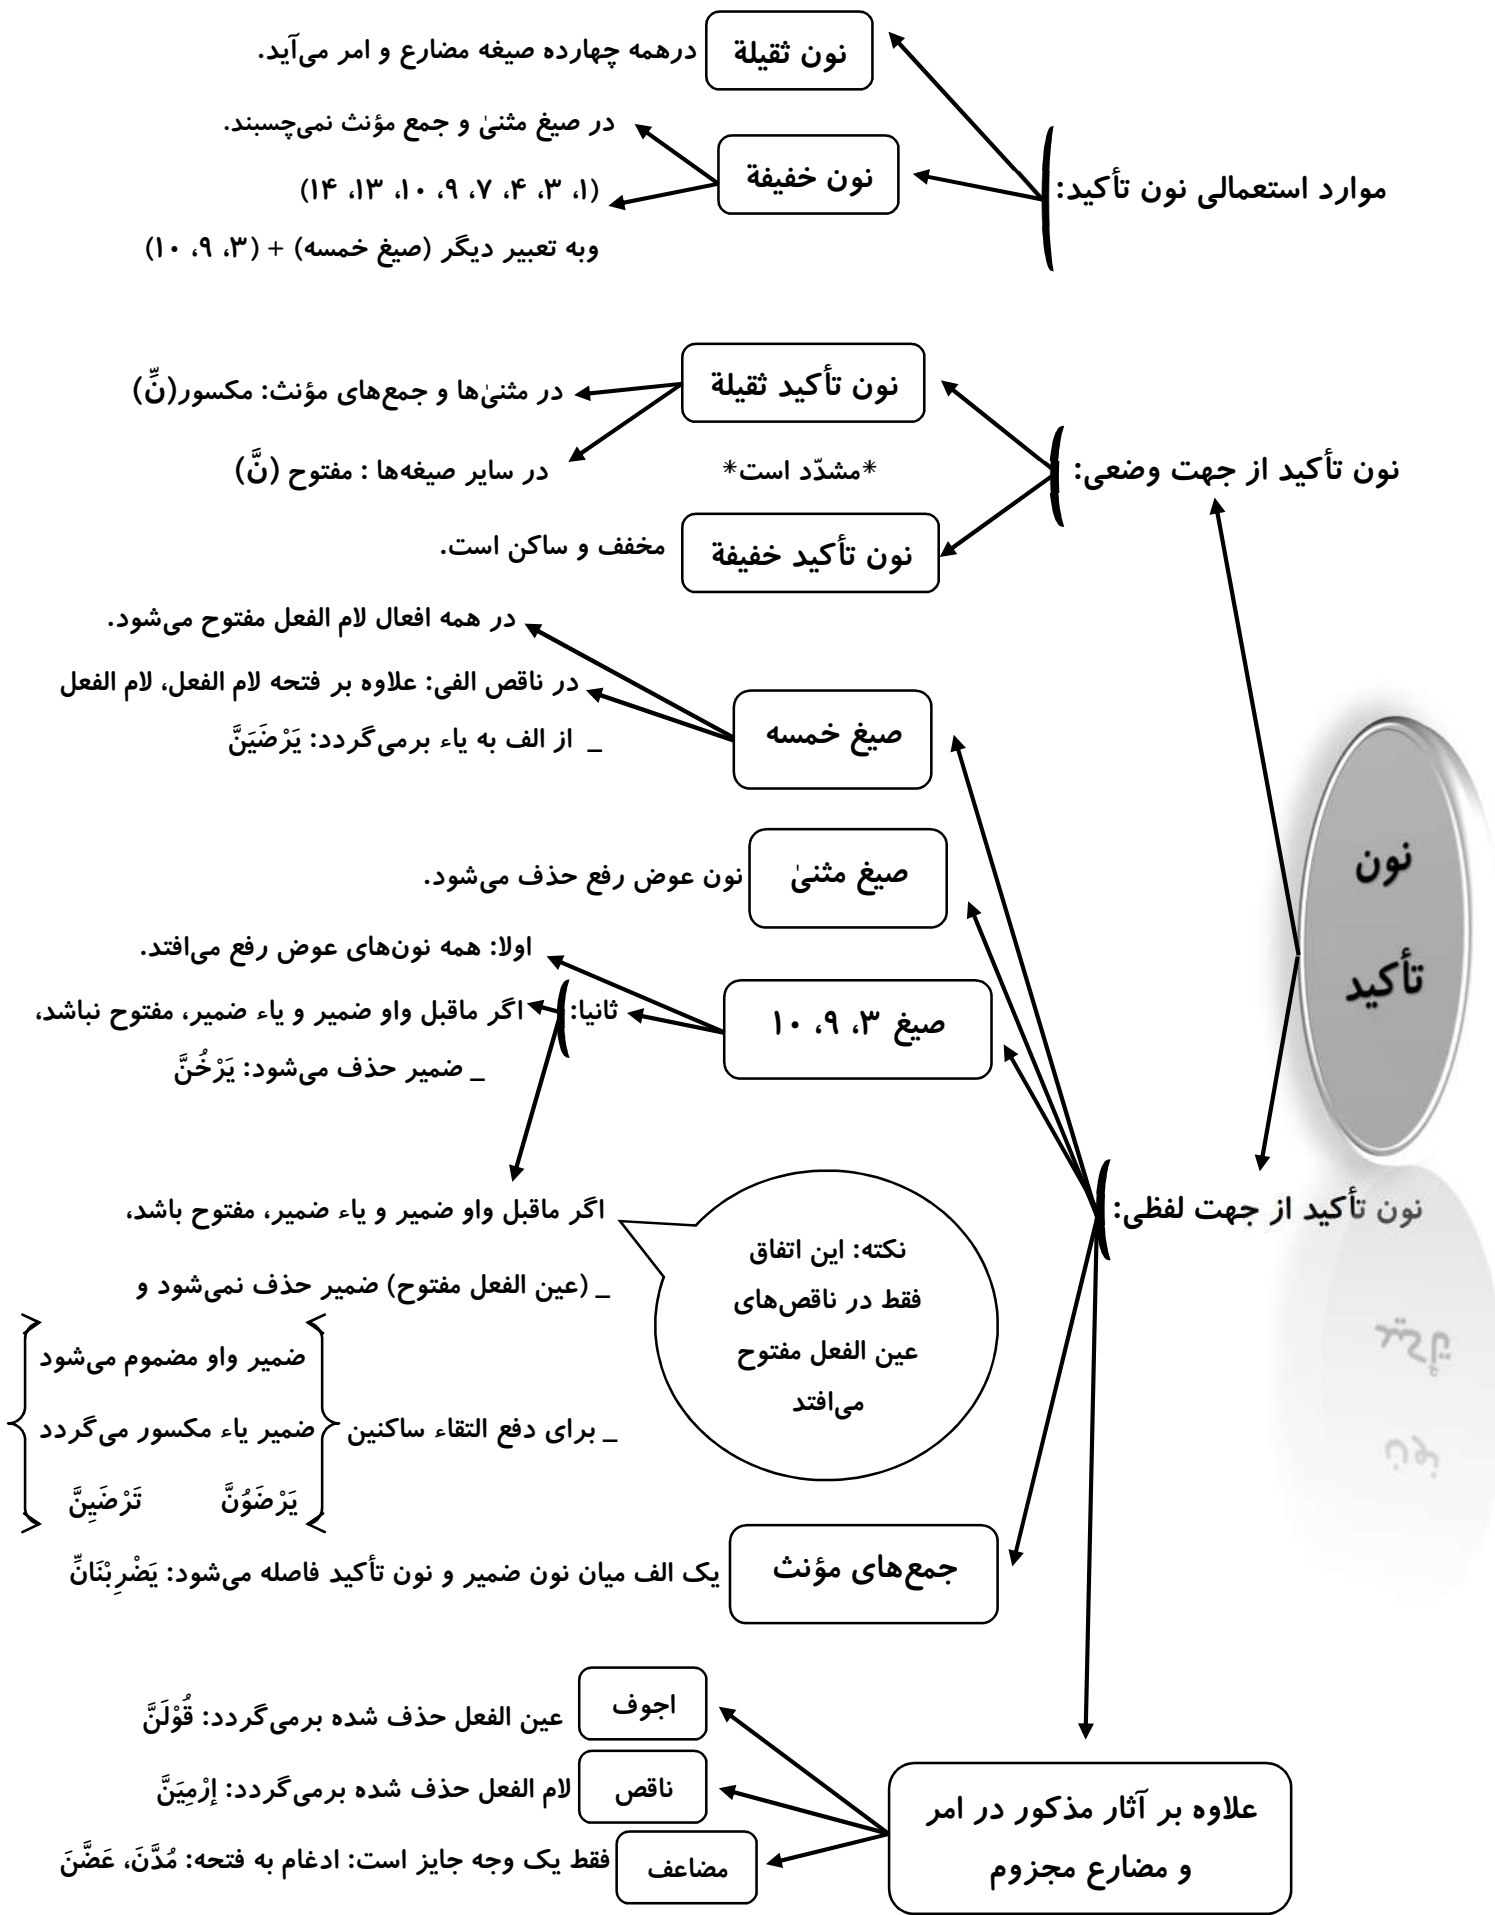 نون ثقیلة
درهمه چهارده صیغه مضارع و امر می‌آید.
موارد استعمالی نون تأکید:
نون خفیفة
در صیغ مثنیٰ و جمع مؤنث نمی‌چسبند.
(۱، ۳، ۴، ۷، ۹، ۱۰، ۱۳، ۱۴)
وبه تعبیر دیگر (صیغ خمسه) + (۳، ۹، ۱۰)
نون تأکید از جهت وضعی:
نون تأکید ثقیلة
*مشدّد است*
در مثنیٰ‌ها و جمع‌های مؤنث: مکسور(نِّ)
در سایر صیغه‌ها : مفتوح (نَّ)
نون تأکید خفیفة
مخفف و ساکن است.
نون
تأکید
نون تأکید از جهت لفظی:
صیغ خمسه
در همه افعال لام الفعل مفتوح می‌شود.
در ناقص الفی: علاوه بر فتحه لام الفعل، لام الفعل
_ از الف به یاء برمی‌گردد: یَرْضَیَنَّ
صیغ مثنیٰ
نون عوض رفع حذف می‌شود.
صیغ ۳، ۹، ۱۰
اولا: همه نون‌های عوض رفع می‌افتد.
ثانیا:
اگر ماقبل واو ضمیر و یاء ضمیر، مفتوح نباشد،
_ ضمیر حذف می‌شود: یَرْخُنَّ
اگر ماقبل واو ضمیر و یاء ضمیر، مفتوح باشد،
_ (عین الفعل مفتوح) ضمیر حذف نمی‌شود و
_ برای دفع التقاء ساکنین
ضمیر واو مضموم می‌شود
ضمیر یاء مکسور می‌گردد
یَرْضَوُنَّ تَرْضَیِنَّ
نکته: این اتفاق
فقط در ناقص‌های
عین الفعل مفتوح
می‌افتد
جمع‌های مؤنث
یک الف میان نون ضمیر و نون تأکید فاصله می‌شود: یَضْرِبْنَانِّ
علاوه بر آثار مذکور در امر
و مضارع مجزوم
اجوف
عین الفعل حذف شده برمی‌گردد: قُوْلَنَّ
ناقص
لام الفعل حذف شده برمی‌گردد: إرْمِیَنَّ
مضاعف
فقط یک وجه جایز است: ادغام به فتحه: مُدَّنَ، عَضَّنَ